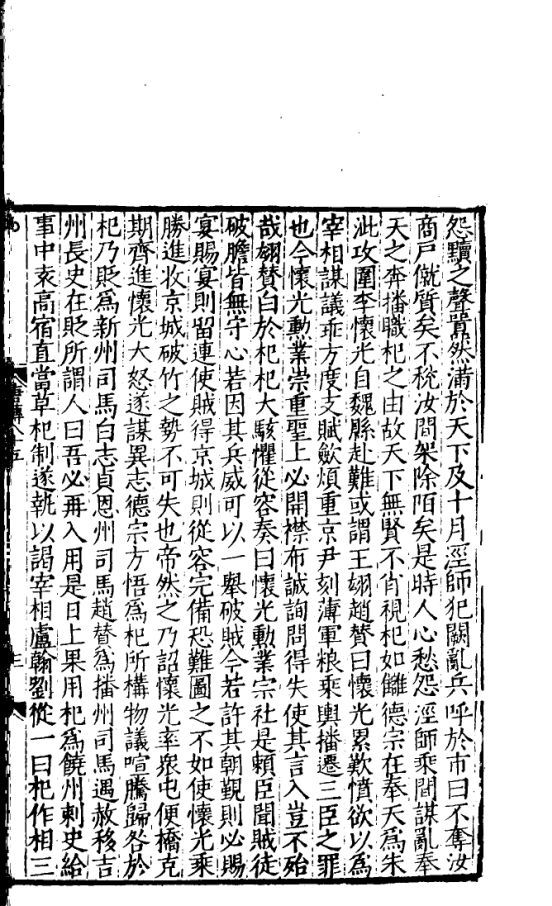 怨黷之聲嚣然滿於天下及十月涇師犯闕亂兵呼於市曰不奪汝
商戸僦質矣不稅汝間架除陌矣是時人心愁怨涇師乘間謀亂奉
天之奔播職杞之由故天下無賢不肖視杞如讎德宗在奉天爲朱
泚攻圍李懷光自魏縣赴難或謂王翃趙賛曰懷光累歎憤欲以爲
宰相謀議乖方度支賦歛煩重京尹刻薄軍粮乘輿播遷三臣之罪
也今懷光勲業崇重聖上必開襟布誠詢問得失使其言入豈不殆
哉翃賛白於杞杞大駭懼從容奏曰懷光勲業宗社是賴臣聞賊徒
破膽皆無守心若因其兵威可以一舉破賊今若許其朝覲則必賜
宴賜宴則留連使賊得京城則從容完備恐難圖之不如使懷光乘
勝進收京城破竹之勢不可失也帝然之乃詔懷光率衆屯便橋克
期齊進懷光大怒遂謀異志德宗方悟爲杞所構物議喧騰歸咎於
杞乃貶爲新州司馬白志貞恩州司馬趙賛爲播州司馬遇赦移吉
州長史在貶所謂人曰吾必再入用是日上果用杞爲饒州刺史給
事中袁高宿直當草杞制遂執以謁宰相盧翰劉從一曰杞作相三